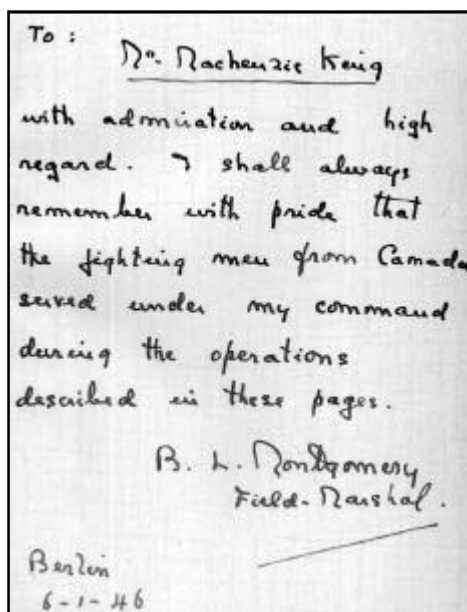 To :
Mr. Mackenzie King
with admiration and high
regard. I shall always
remember with pride that
the fighting men from Canada
served under my command
during the operations
described in these pages.
B. L. Montgomery
Field-Marshal.
Berlin
6-1-46